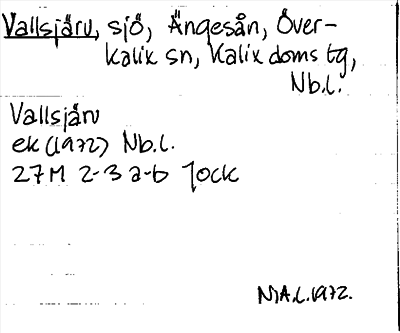 Vallsjärv, sjö, Ängesån, Över-
kalix sn, Kalix doms tg,
Nb.l.
Vallsjärv
ek (1972) Nb.l.
27M 2-3 a-b Jock
NA.L.1972.